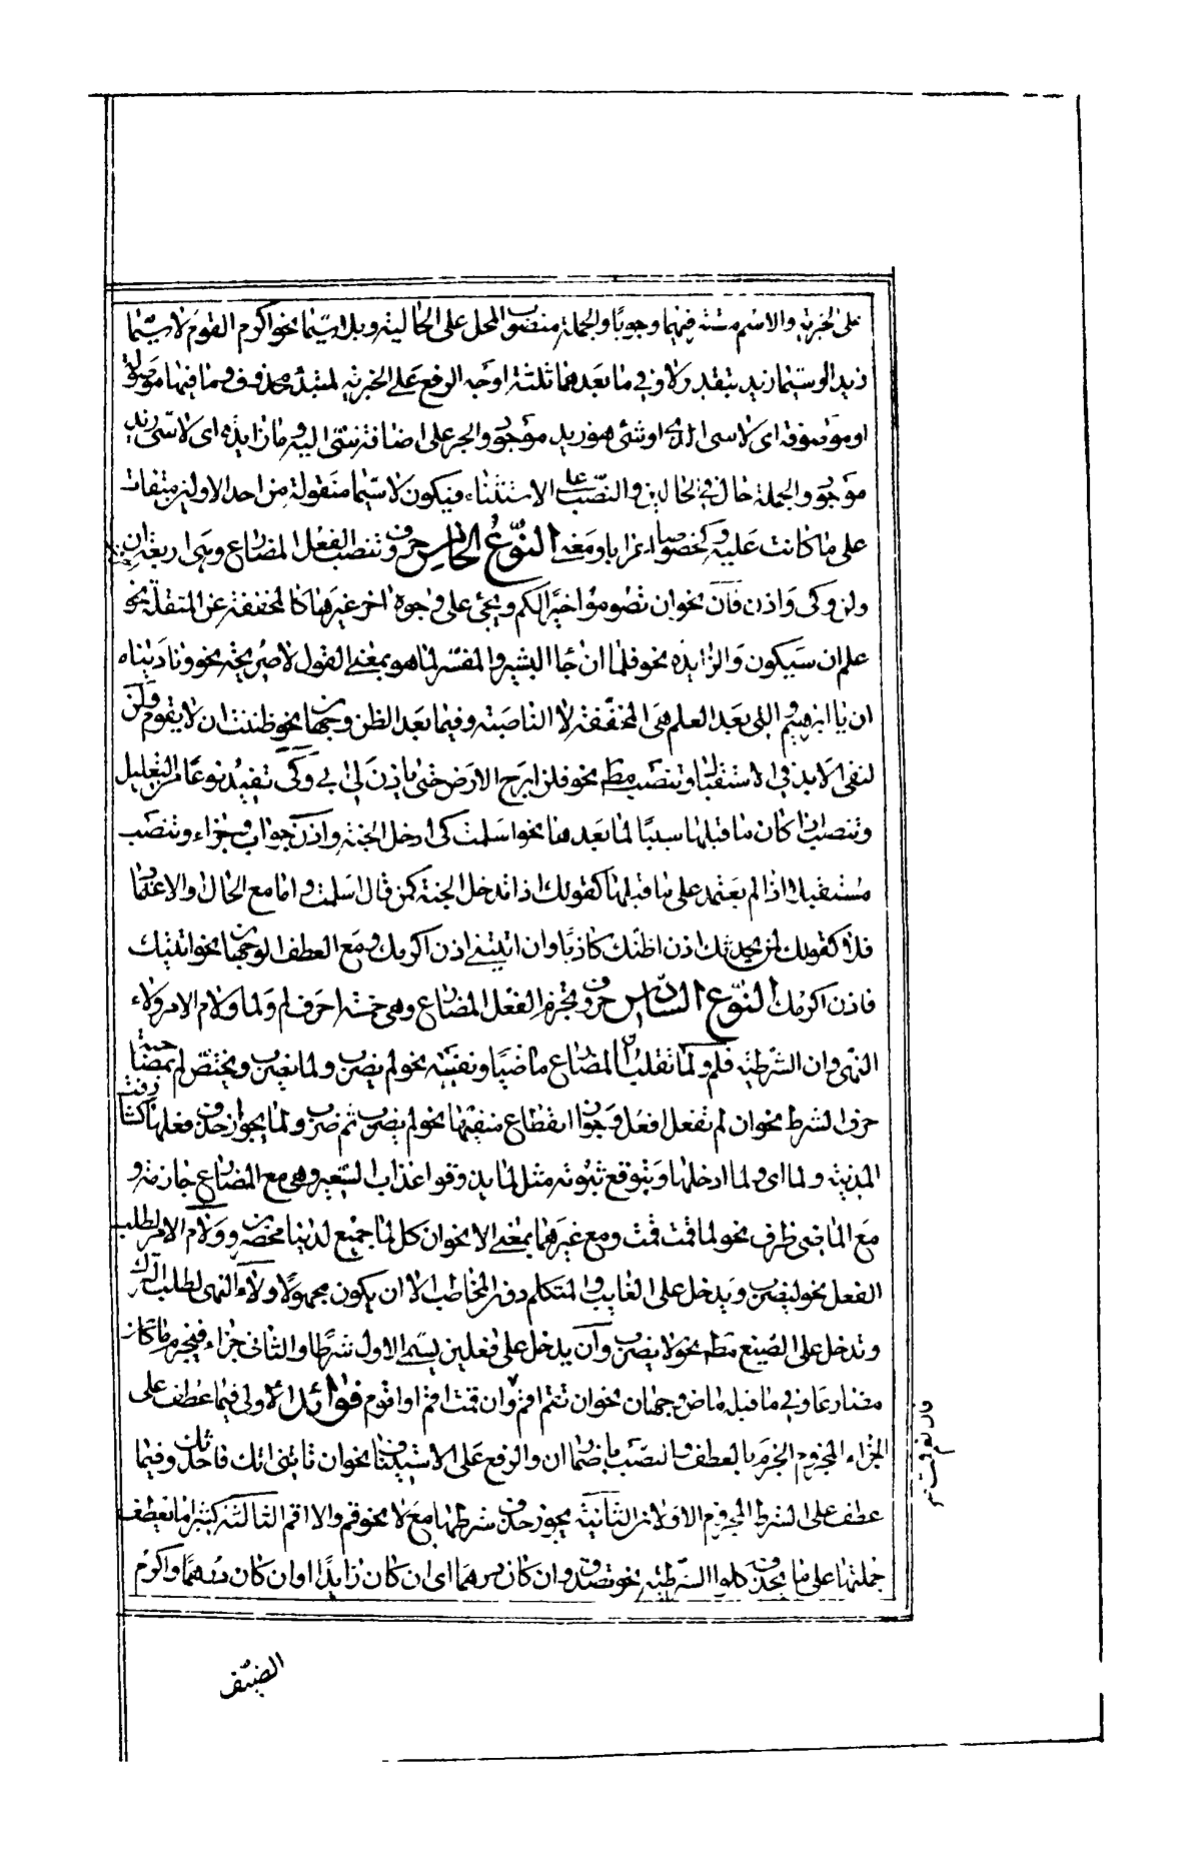 على الخبرية والاسم مستتر فيهما وجوبًا والجملة منصوب المحل على الحالية وبلاسيّما نحو اكرم القوم لاسيّما
زيد او لاسيما زيد بتقدير لا وفي ما بعدها ثلثة اوجه الرفع على الخبرية لمبتدء محذوف وما فيها موصولة
او موصوفة اى لاسى الذى او شئ هو زيد موجود والجر على اضافة سىّ اليه وما زايدة اى لاسىّ زيد
موجود والجملة حال في الحالين والنّصب على الاستثناء فيكون لاسيّما منقولة من احد الاولين مبقاة
على ما كانت عليه وكخصوصا اعرابا ومعنى النّوع الخامس حروف تنصب الفعل المضارع وهى اربعة ان
ولن وكى واذن فان نحو ان تصوموا خير لكم ويجئ على وجوه اخر غيرها كالمخففة عن المثقلة نحو
علم ان سيكون والزايدة نحو فلما ان جاء البشير والمفسّر لما هو بمعنى القول لا صريحه نحو وناديناه
ان يا ابرهيم والتى بعد العلم هى المخففة لا الناصبة وفيما بعد الظن وجهان نحو ظننت ان لا يقوم ولن
لنفى الابد في الاستقبال وتنصب مط نحو فلن ابرح الارض حتى ياذن لى ابى وكى تفيد نوعًا من التعليل
وتنصب اذا كان ما قبلها سببًا لما بعدها نحو اسلمت كى ادخل الجنة واذن جواب وجزاء وتنصب
مستقبلا اذا لم يعتمد على ما قبلها كقولك اذا تدخل الجنة لمن قال اسلمت واما مع الحال والاعتماد
فلا كقولك لمن يحدثك اذن اظنك كاذبًا وان اتيتنى اذن اكرمك ومع العطف الوجهان نحو اتيتك
فاذن اكرمك النّوع السادس حروف تجزم الفعل المضارع وهى خمسة احرف لم ولما ولام الامر ولاء
النهى وان الشرطية فلم ولما تقلبان المضارع ماضيًا وتنفيه نحو لم يضرب ولما يضرب ويختص لم بمصاحبة
حرف الشرط نحو ان لم تفعل افعل وجواز انقطاع منفيها نحو لم يضرب ثم ضرب ولما بجواز حذف فعلها كشارفت
المدينة ولما اى ولما ادخلها وبتوقع ثبوته مثل لما يذوقوا عذاب السعير وهى مع المضارع جازمة و
مع الماضى ظرف نحو لما قمت قمت ومع غيرهما بمعنى الا نحو ان كل لما جميع لدينا محضرون ولام الامر لطلب
الفعل نحو ليضرب ويدخل على الغايب والمتكلم دون المخاطب الا ان يكون مجهولًا ولاء النهى لطلب الترك
وتدخل على الصيغ مط نحو لا يضرب وان يدخل على فعلين يسمى الاول شرطا والثانى جزاء فينجزم ما كان
مضارعا وفي ما قبله ماض وجهان نحو ان تقم اقم وان قمت اقم او اقوم فوائد الاولى فيما عطف على
الجزاء المجزوم الجزم بالعطف والنصب باضمار ان والرفع على الاستيناف نحو ان تاتنى اتك فاحدثك وفيما
عطف على الشرط المجزوم الاولان الثانية يجوز حذف شرطها مع لا نحو قم والا اقم الثالثة كثيرا ما تعطف
جملتها على ما بحذف كلو الشرطية نحو تصدق وان كان درهما اى ان كان زايدًا وان كان درهمًا واكرم
الضيف